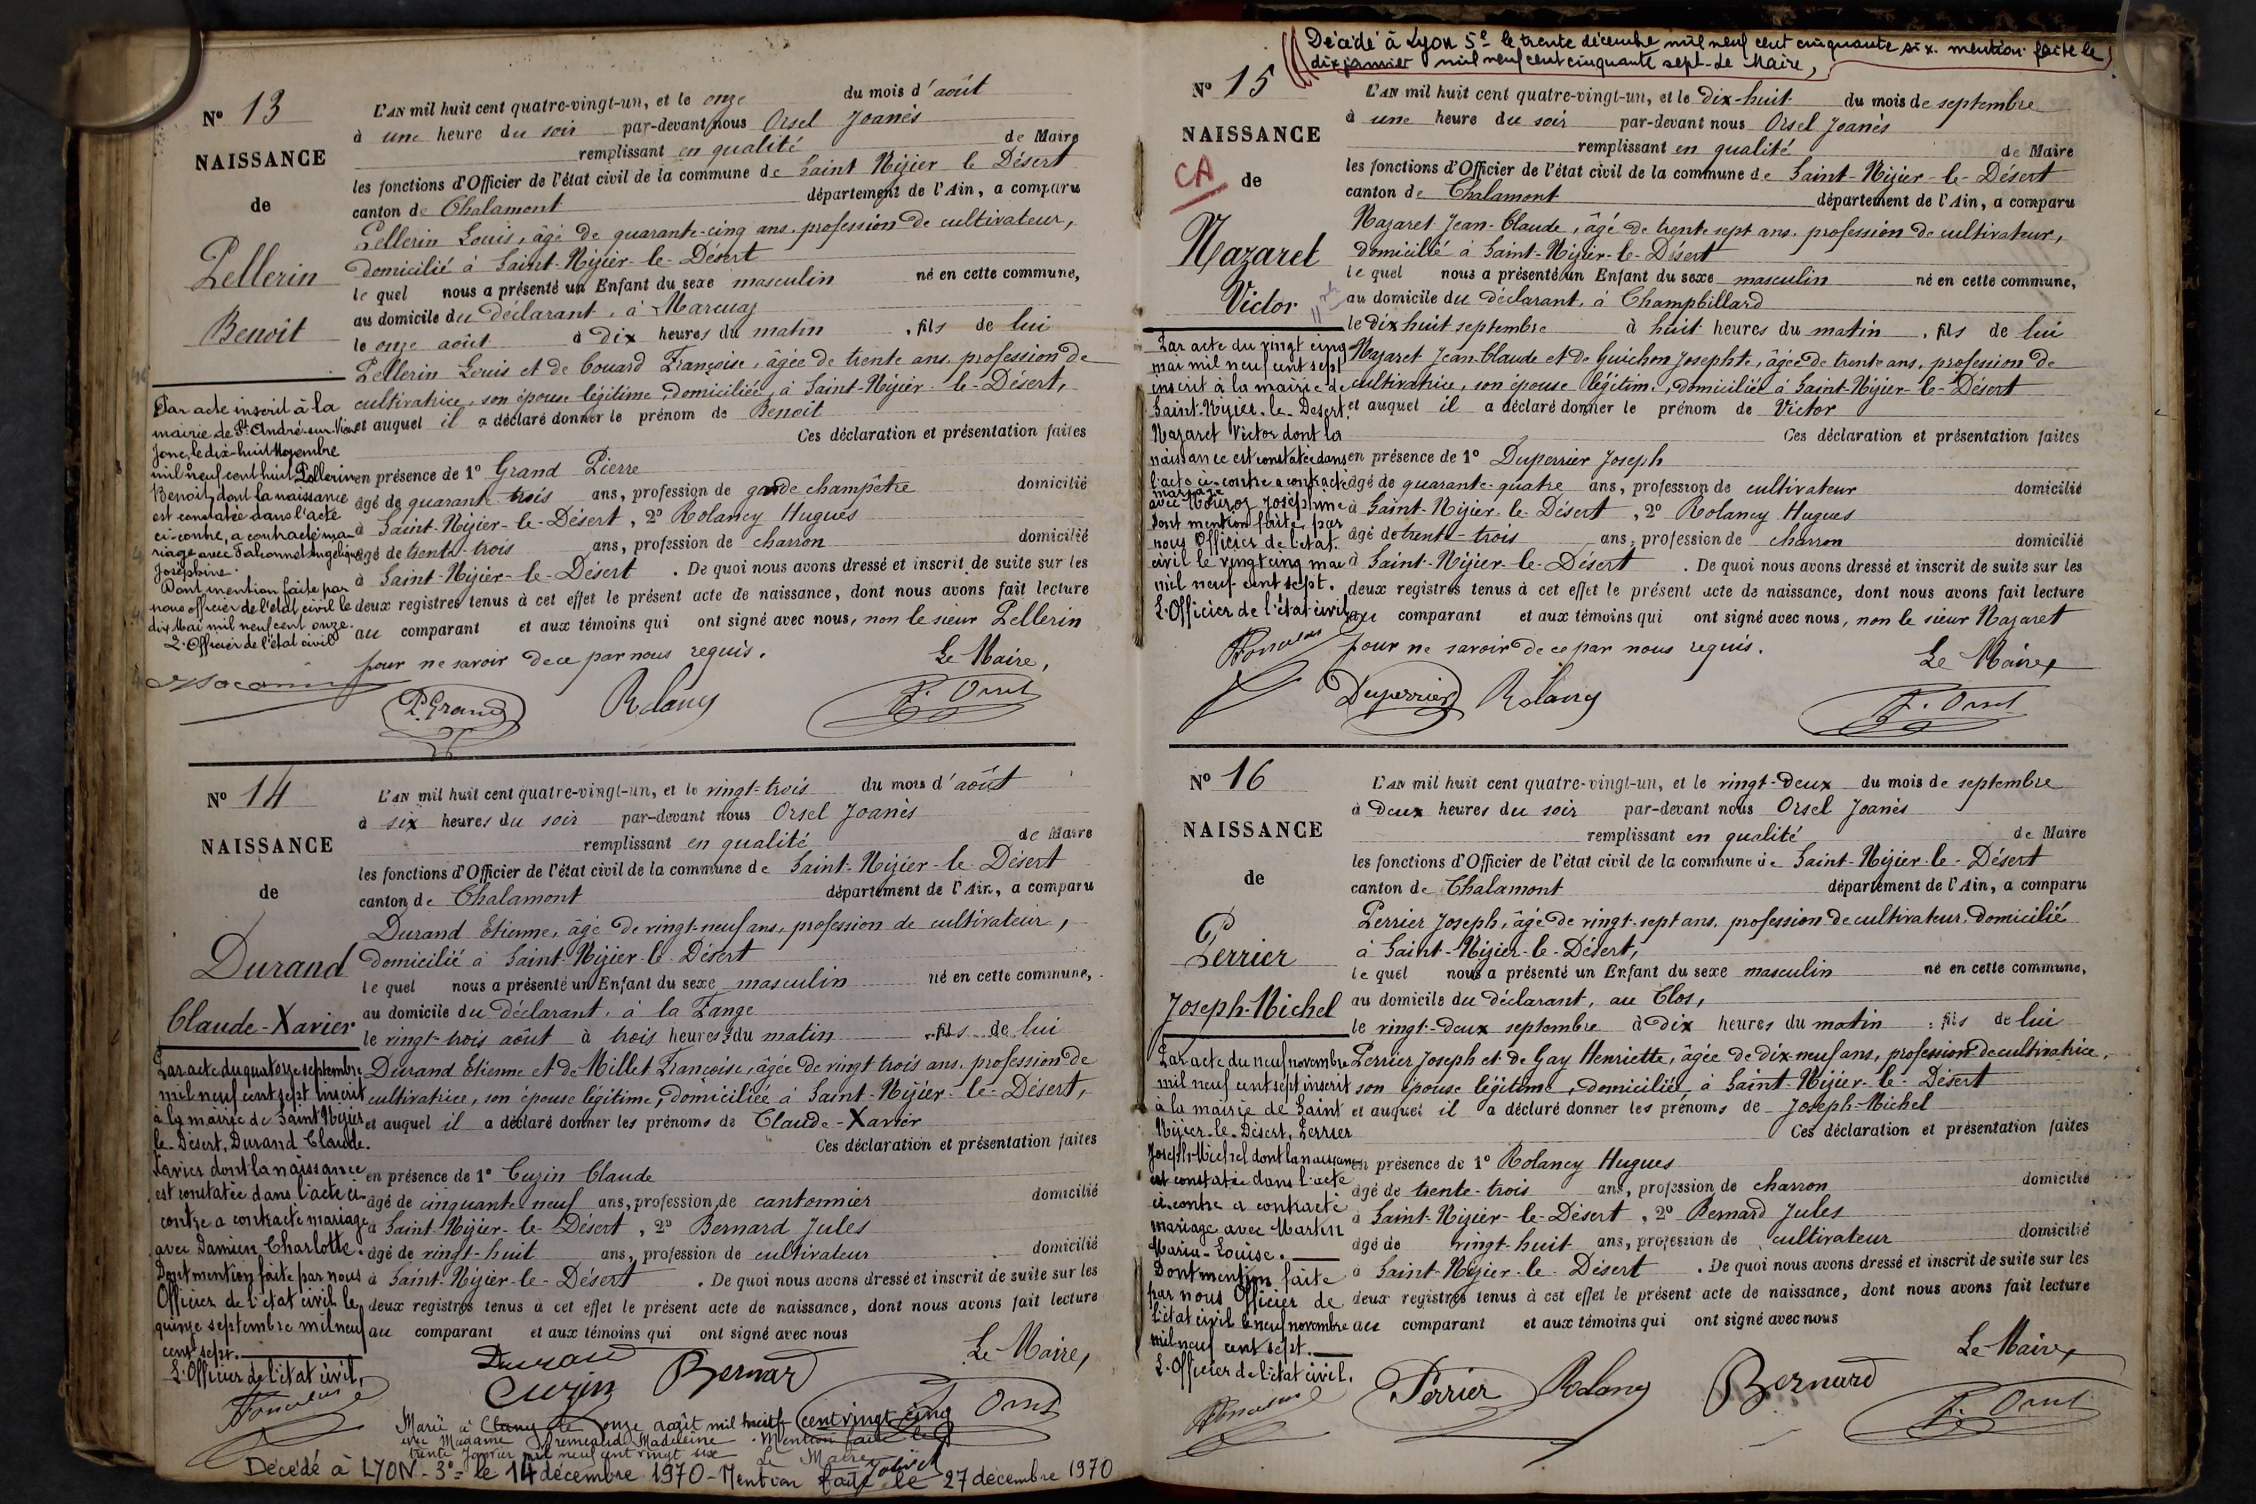 Nº 13
NAISSANCE
de
Pellerin
Benoit
L'AN mil huit cent quatre-vingt-un, et le onze du mois d'août
à une heure du soir par-devant nous Orsel Joanès
remplissant en qualité de Maire
les fonctions d'Officier de l'état civil de la commune de Saint Nizier le Désert
canton de Chalamont département de l'Ain, a comparu
Pellerin Louis, âgé de quarante-cinq ans, profession de cultivateur,
domicilié à Saint-Nizier-le-Désert
lequel nous a présenté un Enfant du sexe masculin né en cette commune,
au domicile du déclarant, à Marcuaz
le onze août à dix heures du matin, fils de lui
Pellerin Louis et de Couard Françoise, âgée de trente ans, profession de
cultivatrice, son épouse légitime, domiciliée à Saint-Nizier-le-Désert,
et auquel il a déclaré donner le prénom de Benoit
Ces déclaration et présentation faites
en présence de 1º Grand Pierre
âgé de quarante-trois ans, profession de garde champêtre domicilié
à Saint-Nizier-le-Désert, 2º Rolancy Hugues
âgé de trente-trois ans, profession de charron domicilié
à Saint-Nizier-le-Désert. De quoi nous avons dressé et inscrit de suite sur les
deux registres tenus à cet effet le présent acte de naissance, dont nous avons fait lecture
au comparant et aux témoins qui ont signé avec nous, non le sieur Pellerin
pour ne savoir de ce par nous requis.
Le Maire,
P. Grand Rolancy J. Orsel
Par acte inscrit à la
mairie de St André-sur-Vieux
Jonc, le dix-huit Novembre
mil neuf cent huit Pellerin
Benoit, dont la naissance
est constatée dans l'acte
ci-contre, a contracté ma-
riage avec Falconnet Angélique
Joséphine.
Dont mention faite par
nous officier de l'état civil le
dix Mai mil neuf cent onze.
L'Officier de l'état civil
Nº 14
NAISSANCE
de
Durand
Claude-Xavier
L'AN mil huit cent quatre-vingt-un, et le vingt-trois du mois d'août
à six heures du soir par-devant nous Orsel Joanès
remplissant en qualité de Maire
les fonctions d'Officier de l'état civil de la commune de Saint-Nizier-le-Désert
canton de Chalamont département de l'Ain, a comparu
Durand Etienne, âgé de vingt-neuf ans, profession de cultivateur,
domicilié à Saint-Nizier-le-Désert
lequel nous a présenté un Enfant du sexe masculin né en cette commune,
au domicile du déclarant, à la Fange
le vingt-trois août à trois heures du matin, fils de lui
Durand Etienne et de Millet Françoise, âgée de vingt trois ans, profession de
cultivatrice, son épouse légitime, domiciliée à Saint-Nizier-le-Désert,
et auquel il a déclaré donner les prénoms de Claude-Xavier
Ces déclaration et présentation faites
en présence de 1º Cuzin Claude
âgé de cinquante neuf ans, profession de cantonnier domicilié
à Saint Nizier-le-Désert, 2º Bernard Jules
âgé de vingt-huit ans, profession de cultivateur domicilié
à Saint-Nizier-le-Désert. De quoi nous avons dressé et inscrit de suite sur les
deux registres tenus à cet effet le présent acte de naissance, dont nous avons fait lecture
au comparant et aux témoins qui ont signé avec nous
Le Maire,
Durand
Cuzin Bernard J. Orsel
Par acte du quatorze septembre
mil neuf cent sept inscrit
à la mairie de Saint Nizier
le-Désert, Durand Claude-
Xavier dont la naissance
est constatée dans l'acte ci-
contre a contracté mariage
avec Damien Charlotte.
Dont mention faite par nous
Officier de l'état civil le
quinze septembre mil neuf
cent sept.
L'Officier de l'état civil,
Marié à le onze août mil neuf cent vingt cinq
avec Madame Madeleine. Mention faite le
trente Janvier mil neuf cent vingt six
Le Maire
Décédé à LYON-3e le 14 décembre 1970 - Mention faite le 27 décembre 1970
Décédé à Lyon 5e le trente décembre mil neuf cent cinquante six. mention faite le
dix janvier mil neuf cent cinquante sept. Le Maire,
Nº 15
NAISSANCE
CA
de
Nazaret
Victor
L'AN mil huit cent quatre-vingt-un, et le dix-huit du mois de septembre
à une heure du soir par-devant nous Orsel Joanès
remplissant en qualité de Maire
les fonctions d'Officier de l'état civil de la commune de Saint-Nizier-le-Désert
canton de Chalamont département de l'Ain, a comparu
Nazaret Jean-Claude, âgé de trente sept ans, profession de cultivateur,
domicilié à Saint-Nizier-le-Désert
lequel nous a présenté un Enfant du sexe masculin né en cette commune,
au domicile du déclarant, à Champbillard
le dix huit septembre à huit heures du matin, fils de lui
Nazaret Jean-Claude et de Guichon Josephte, âgée de trente ans, profession de
cultivatrice, son épouse légitime, domiciliée à Saint-Nizier-le-Désert
et auquel il a déclaré donner le prénom de Victor
Ces déclaration et présentation faites
en présence de 1º Duperrier Joseph
âgé de quarante-quatre ans, profession de cultivateur domicilié
à Saint-Nizier-le-Désert, 2º Rolancy Hugues
âgé de trente-trois ans, profession de charron domicilié
à Saint-Nizier-le-Désert. De quoi nous avons dressé et inscrit de suite sur les
deux registres tenus à cet effet le présent acte de naissance, dont nous avons fait lecture
au comparant et aux témoins qui ont signé avec nous, non le sieur Nazaret
pour ne savoir de ce par nous requis.
Le Maire,
Duperrier Rolancy J. Orsel
Par acte du vingt cinq
mai mil neuf cent sept
inscrit à la mairie de
Saint-Nizier-le-Désert,
Nazaret Victor dont la
naissance est constatée dans
l'acte ci-contre a contracté
mariage
avec Mouroz Joséphine
dont mention faite par
nous Officier de l'état
civil le vingt cinq mai
mil neuf cent sept.
L'Officier de l'état civil
Nº 16
NAISSANCE
de
Perrier
Joseph-Michel
L'AN mil huit cent quatre-vingt-un, et le vingt-deux du mois de septembre
à deux heures du soir par-devant nous Orsel Joanès
remplissant en qualité de Maire
les fonctions d'Officier de l'état civil de la commune de Saint-Nizier-le-Désert
canton de Chalamont département de l'Ain, a comparu
Perrier Joseph, âgé de vingt-sept ans, profession de cultivateur, domicilié
à Saint-Nizier-le-Désert,
lequel nous a présenté un Enfant du sexe masculin né en cette commune,
au domicile du déclarant, au Clos,
le vingt-deux septembre à dix heures du matin, fils de lui
Perrier Joseph et de Gay Henriette, âgée de dix-neuf ans, profession de cultivatrice,
son épouse légitime, domiciliée à Saint-Nizier-le-Désert
et auquel il a déclaré donner les prénoms de Joseph-Michel
Ces déclaration et présentation faites
en présence de 1º Rolancy Hugues
âgé de trente-trois ans, profession de charron domicilié
à Saint-Nizier-le-Désert, 2º Bernard Jules
âgé de vingt-huit ans, profession de cultivateur domicilié
à Saint-Nizier-le-Désert. De quoi nous avons dressé et inscrit de suite sur les
deux registres tenus à cet effet le présent acte de naissance, dont nous avons fait lecture
au comparant et aux témoins qui ont signé avec nous
Le Maire,
Perrier Rolancy Bernard J. Orsel
Par acte du neuf novembre
mil neuf cent sept inscrit
à la mairie de Saint
Nizier-le-Désert, Perrier
Joseph-Michel dont la naissance
est constatée dans l'acte
ci-contre a contracté
mariage avec Martin
Maria-Louise.
Dont mention faite
par nous Officier de
l'état civil le neuf novembre
mil neuf cent sept.
L'Officier de l'état civil.